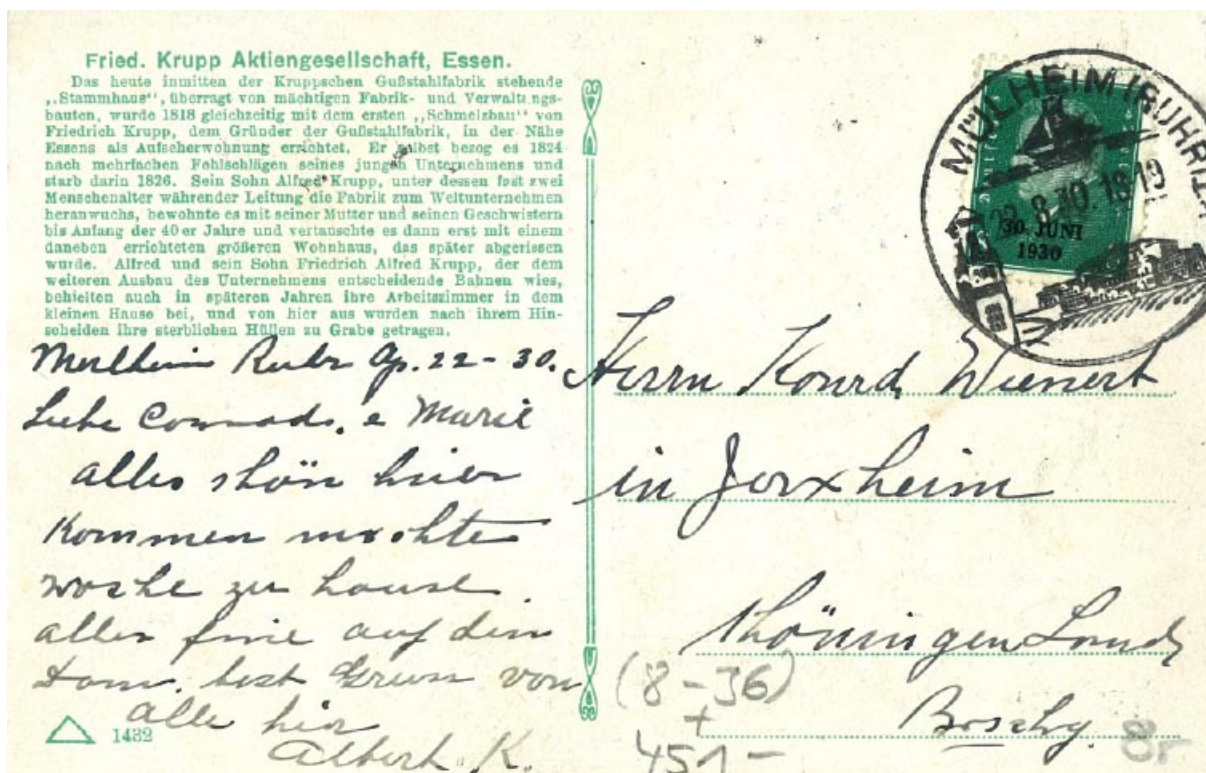 Fried. Krupp Aktiengesellschaft, Essen.
Das heute inmitten der Kruppschen Gußstahlfabrik stehende
„Stammhaus“, überragt von mächtigen Fabrik- und Verwaltungs-
bauten, wurde 1818 gleichzeitig mit dem ersten „Schmelzbau“ von
Friedrich Krupp, dem Gründer der Gußstahlfabrik, in der Nähe
Essens als Aufseherwohnung errichtet. Er selbst bezog es 1824
nach mehrfachen Fehlschlägen seines jungen Unternehmens und
starb darin 1826. Sein Sohn Alfred Krupp, unter dessen fast zwei
Menschenalter währender Leitung die Fabrik zum Weltunternehmen
heranwuchs, bewohnte es mit seiner Mutter und seinen Geschwistern
bis Anfang der 40er Jahre und vertauschte es dann erst mit einem
daneben errichteten größeren Wohnhaus, das später abgerissen
wurde. Alfred und sein Sohn Friedrich Alfred Krupp, der dem
weiteren Ausbau des Unternehmens entscheidende Bahnen wies,
behielten auch in späteren Jahren ihre Arbeitszimmer in dem
kleinen Hause bei, und von hier aus wurden nach ihrem Hin-
scheiden ihre sterblichen Hüllen zu Grabe getragen.
22-30.
Liebe Conrads. e Marie
alles shön hier
kommen
woshe zu hause.
alles fine auf den
best Gruss von
alle hier
Albert K.
1432
MÜLHEIM (RUHR)
8.30.18-19
30. JUNI
1930
Herrn Konrd Wienert
in Jerxheim
Shöningen Land
(8-36)
+
451-